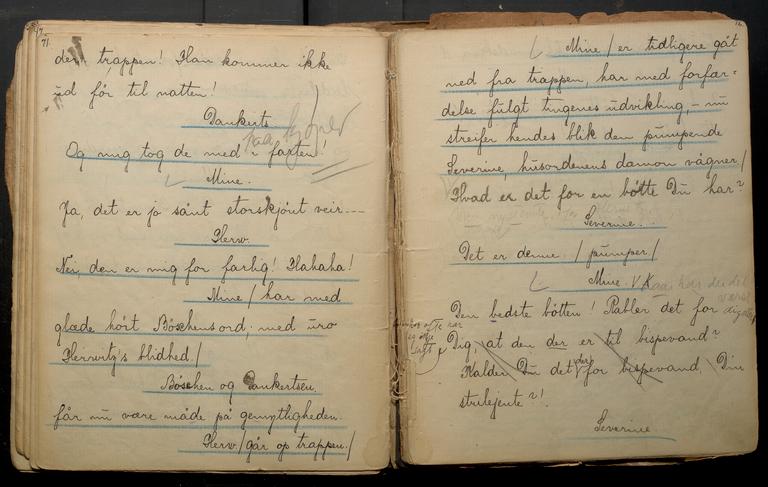 71.
den trappen! Han kommer ikke
ud før til natten!
Dankerts
Og mig tog de med i farten!
Mine.
Ja, det er jo sånt storskjøiet veir---
Herw.
Nei, den er mig for farlig! Hahaha!
Mine / har med
glæde hört Böschens ord; med uro
Herwitz's blidhed./
Böschen og Dankertsen
får nu være måde på gemytligheden.
Herw./går op trappen./
Mine / er tidligere gåt
ned fra trappen, har med forfær=
delse fulgt tingenes udvikling, - nu
streifer hendes blik den pumpende
Severine, husordenens dæmon vågner/
Hvad er det for en bøtte Du har?
Severine.
Det er denne. / pumper /
Mine.
Den bedste bötten! Rabler det for
Dig, at den der er til bispevand?
Kalder Du det der for bispevand Din
strilejente?!
Severine